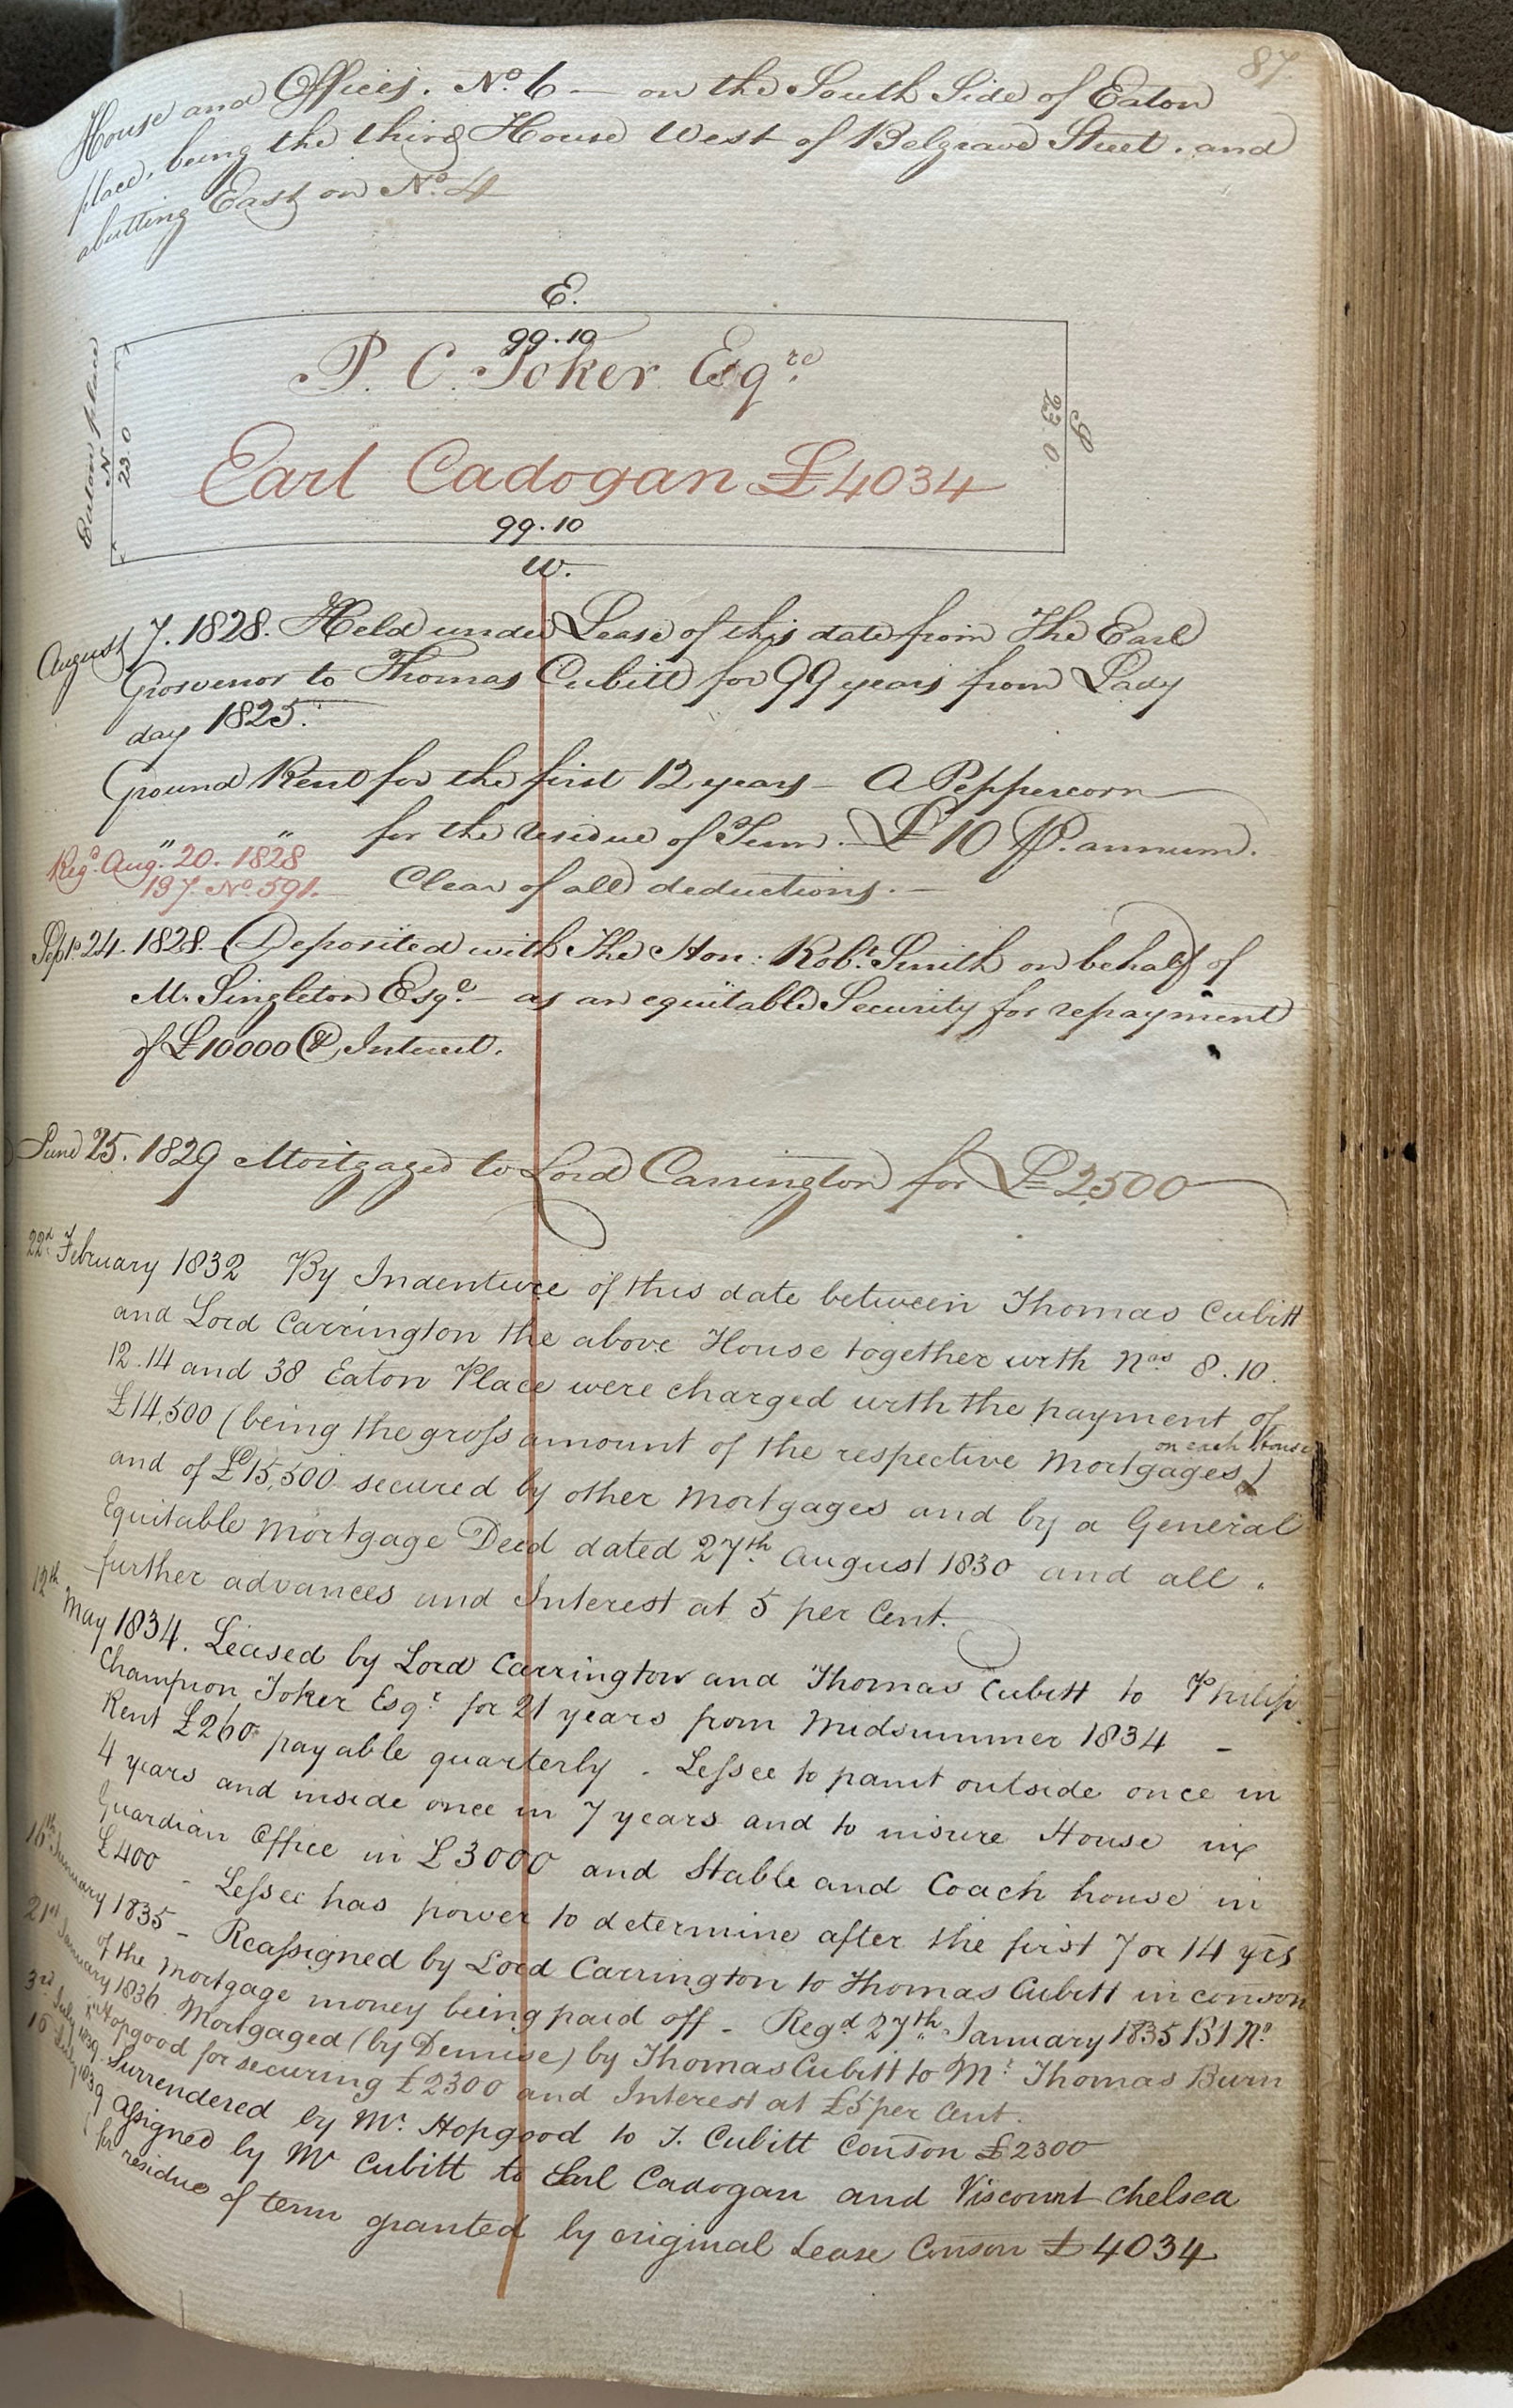 87
House and Offices. No. 6 — on the South Side of Eaton
place, being the third House West of Belgrave Street. and
abutting East on No. 4
E.
99.10
P. C. Toker Esqre.
Eaton place
N
23.0
S
23 0.
Earl Cadogan £4034
99.10
W.
August 7. 1828. Held under Lease of this date from The Earl
Grosvenor to Thomas Cubitt for 99 years from Lady
day 1825.
Ground Rent for the first 12 years — A Peppercorn
" " for the residue of Term. £10 P. annum.
Regd. Aug. 20. 1828
Clear of all deductions. —
137. No. 591.
Sept. 24. 1828. Deposited with The Hon: Robt. Smith on behalf of
M. Singleton Esqe. — as an equitable Security for repayment
of £10000 & Interest.
June 25. 1829 Mortgaged to Lord Carrington for £2500
22d. February 1832 By Indenture of this date between Thomas Cubitt
and Lord Carrington the above House together with Nos 8. 10.
12. 14 and 38 Eaton Place were charged with the payment of
£14,500 (being the gross amount of the respective Mortgages on each House)
and of £15,500 secured by other Mortgages and by a General
Equitable Mortgage Deed dated 27th. August 1830 and all
further advances and Interest at 5 per Cent.
12th May 1834. Leased by Lord Carrington and Thomas Cubitt to Philip
Champion Toker Esqr. for 21 years from Midsummer 1834 —
Rent £260 payable quarterly. Lessee to paint outside once in
4 years and inside once in 7 years and to insure House in
Guardian Office in £3000 and Stable and Coach house in
£400 - Lessee has power to determine after the first 7 or 14 yrs
16th January 1835 - Reassigned by Lord Carrington to Thomas Cubitt in conson
of the mortgage money being paid off - Regd. 27th January 1835 B1 No.
21st January 1836. Mortgaged (by Demise) by Thomas Cubitt to Mr. Thomas Burn
Hopgood for securing £2300 and Interest at £5 per Cent.
3rd July 1839. Surrendered by Mr. Hopgood to T. Cubitt Conson £2300
16 July 1839 Assigned by Mr Cubitt to Earl Cadogan and Viscount Chelsea
for residue of term granted by original Lease Conson £4034